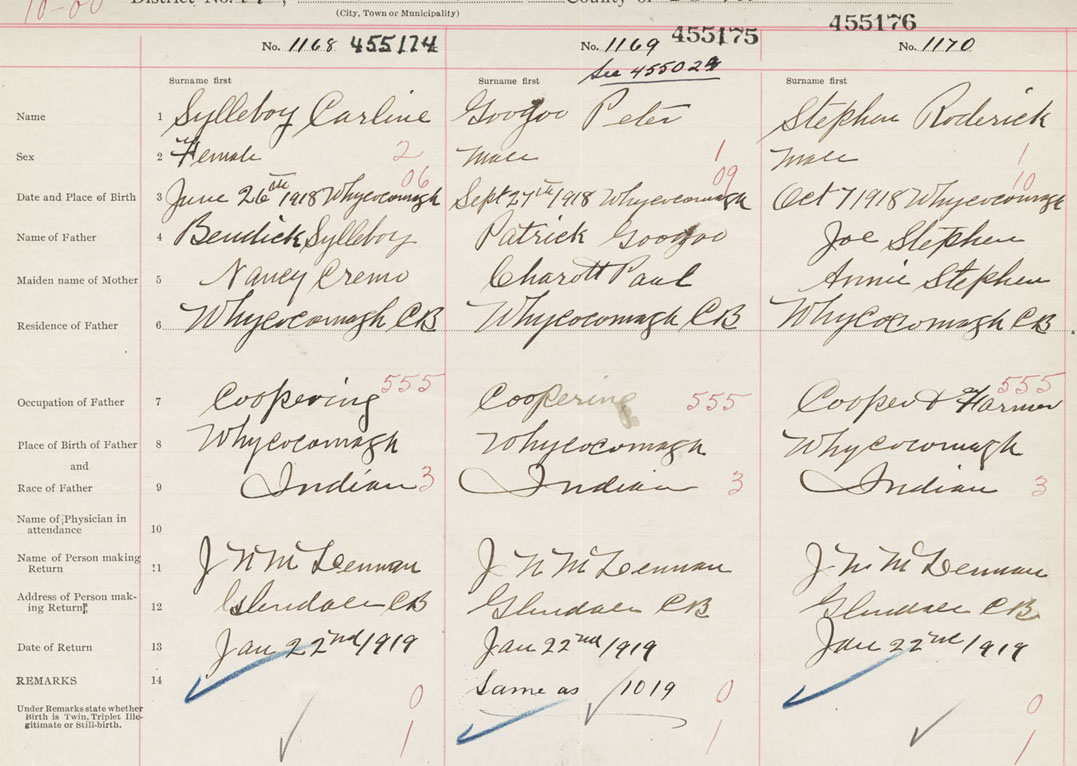 District No.
County of
(City, Town or Municipality)
455176
No. 1168 455174
No. 1169 455175
No. 1170
See 455029
Surname first Surname first Surname first
Name 1 Sylleboy Carline Googoo Peter Stephen Roderick
Sex 2 Female 2 Male 1 Male 1
06 09 10
Date and Place of Birth 3 June 26th 1918 Whycocomagh Sept 27th/1918 Whycocomagh Oct 7/1918 Whycocomagh
Name of Father 4 Bendick Sylleboy Patrick Googoo Joe Stephen
Maiden name of Mother 5 Nancy Cremo Charott Paul Annie Stephen
Residence of Father 6 Whycocomagh CB Whycocomagh CB Whycocomagh CB
Occupation of Father 7 Coopering 555 Coopering 555 Cooper & Farmer 555
Place of Birth of Father 8 Whycocomagh Whycocomagh Whycocomagh
and
Race of Father 9 Indian 3 Indian 3 Indian 3
Name of Physician in
attendance 10
Name of Person making
Return 11 J N McLennan J N McLennan J N McLennan
Address of Person mak-
ing Return 12 Glendale CB Glendale CB Glendale CB
Date of Return 13 Jan 22nd/1919 Jan 22nd/1919 Jan 22nd/1919
REMARKS 14 Same as 1019
0 0 0
Under Remarks state whether
Birth is Twin, Triplet Ille-
gitimate or Still-birth.
1 1 1